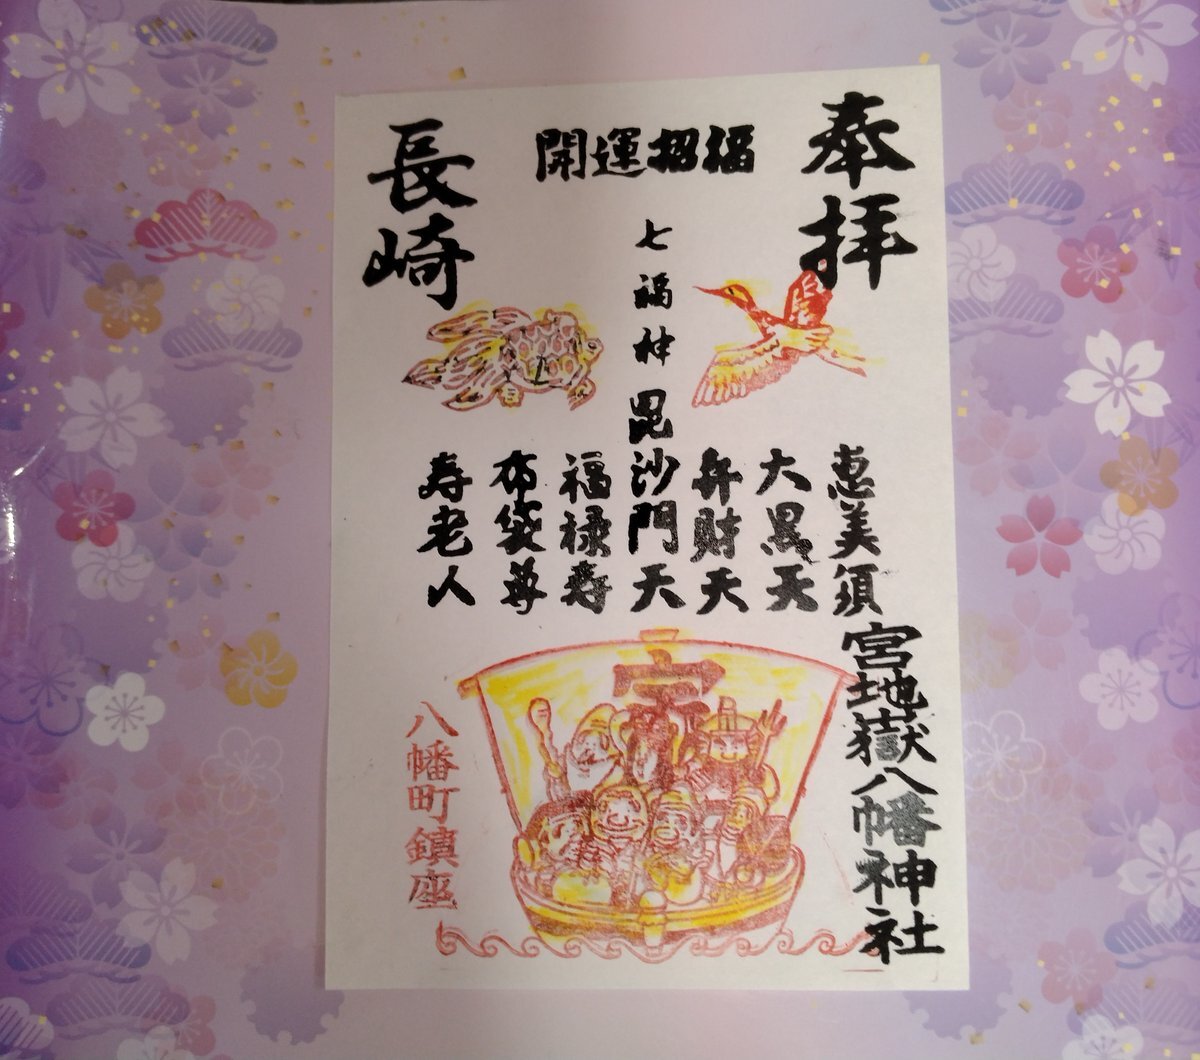 奉拝
開運招福
長崎
七福神
恵美須
大黒天
弁財天
毘沙門天
福禄寿
布袋尊
寿老人
宝
宮地嶽八幡神社
八幡町鎮座